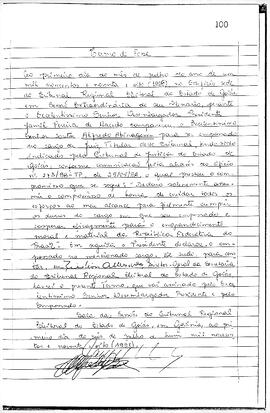 100
Termo de Posse
Ao primeiro dia do mês de julho do ano de um
mil novecentos e noventa e oito (1998), no Edifício sede
do Tribunal Regional Eleitoral do Estado de Goiás,
em Sessão Extraordinária de seu Plenário, perante
o Excelentíssimo Senhor Desembargador Presidente
Jamil Pereira de Macedo compareceu o Excelentíssimo
Senhor Doutor Alfredo Abinagem para ser empossado
no cargo de Juiz Titular deste Tribunal,
indicado pelo Tribunal de Justiça do Estado de
Goiás, conforme
o qual prestou o com-
promisso que se segue:
mo o compromisso de honra, de envidar todos os
esforços ao meu alcance para fielmente cumprir
os deveres do cargo em que sou empossado e
cooperar para o engrandecimento
moral e material da República Federativa do
Brasil". Em seguida, o Presidente declarou-o em-
possado no mencionado cargo. De tudo, para cons-
tar, eu, Diretor-Geral da Secretaria
do Tribunal Regional Eleitoral do Estado de Goiás,
lavrei o presente Termo, que vai assinado pelo Exce-
lentíssimo Senhor Desembargador Presidente e pelo
empossado.
Sala das Sessões do Tribunal Regional
Eleitoral do Estado de Goiás, em Goiânia, ao pri-
meiro dia do mês de julho de hum mil novecen-
tos e noventa e oito (1998).